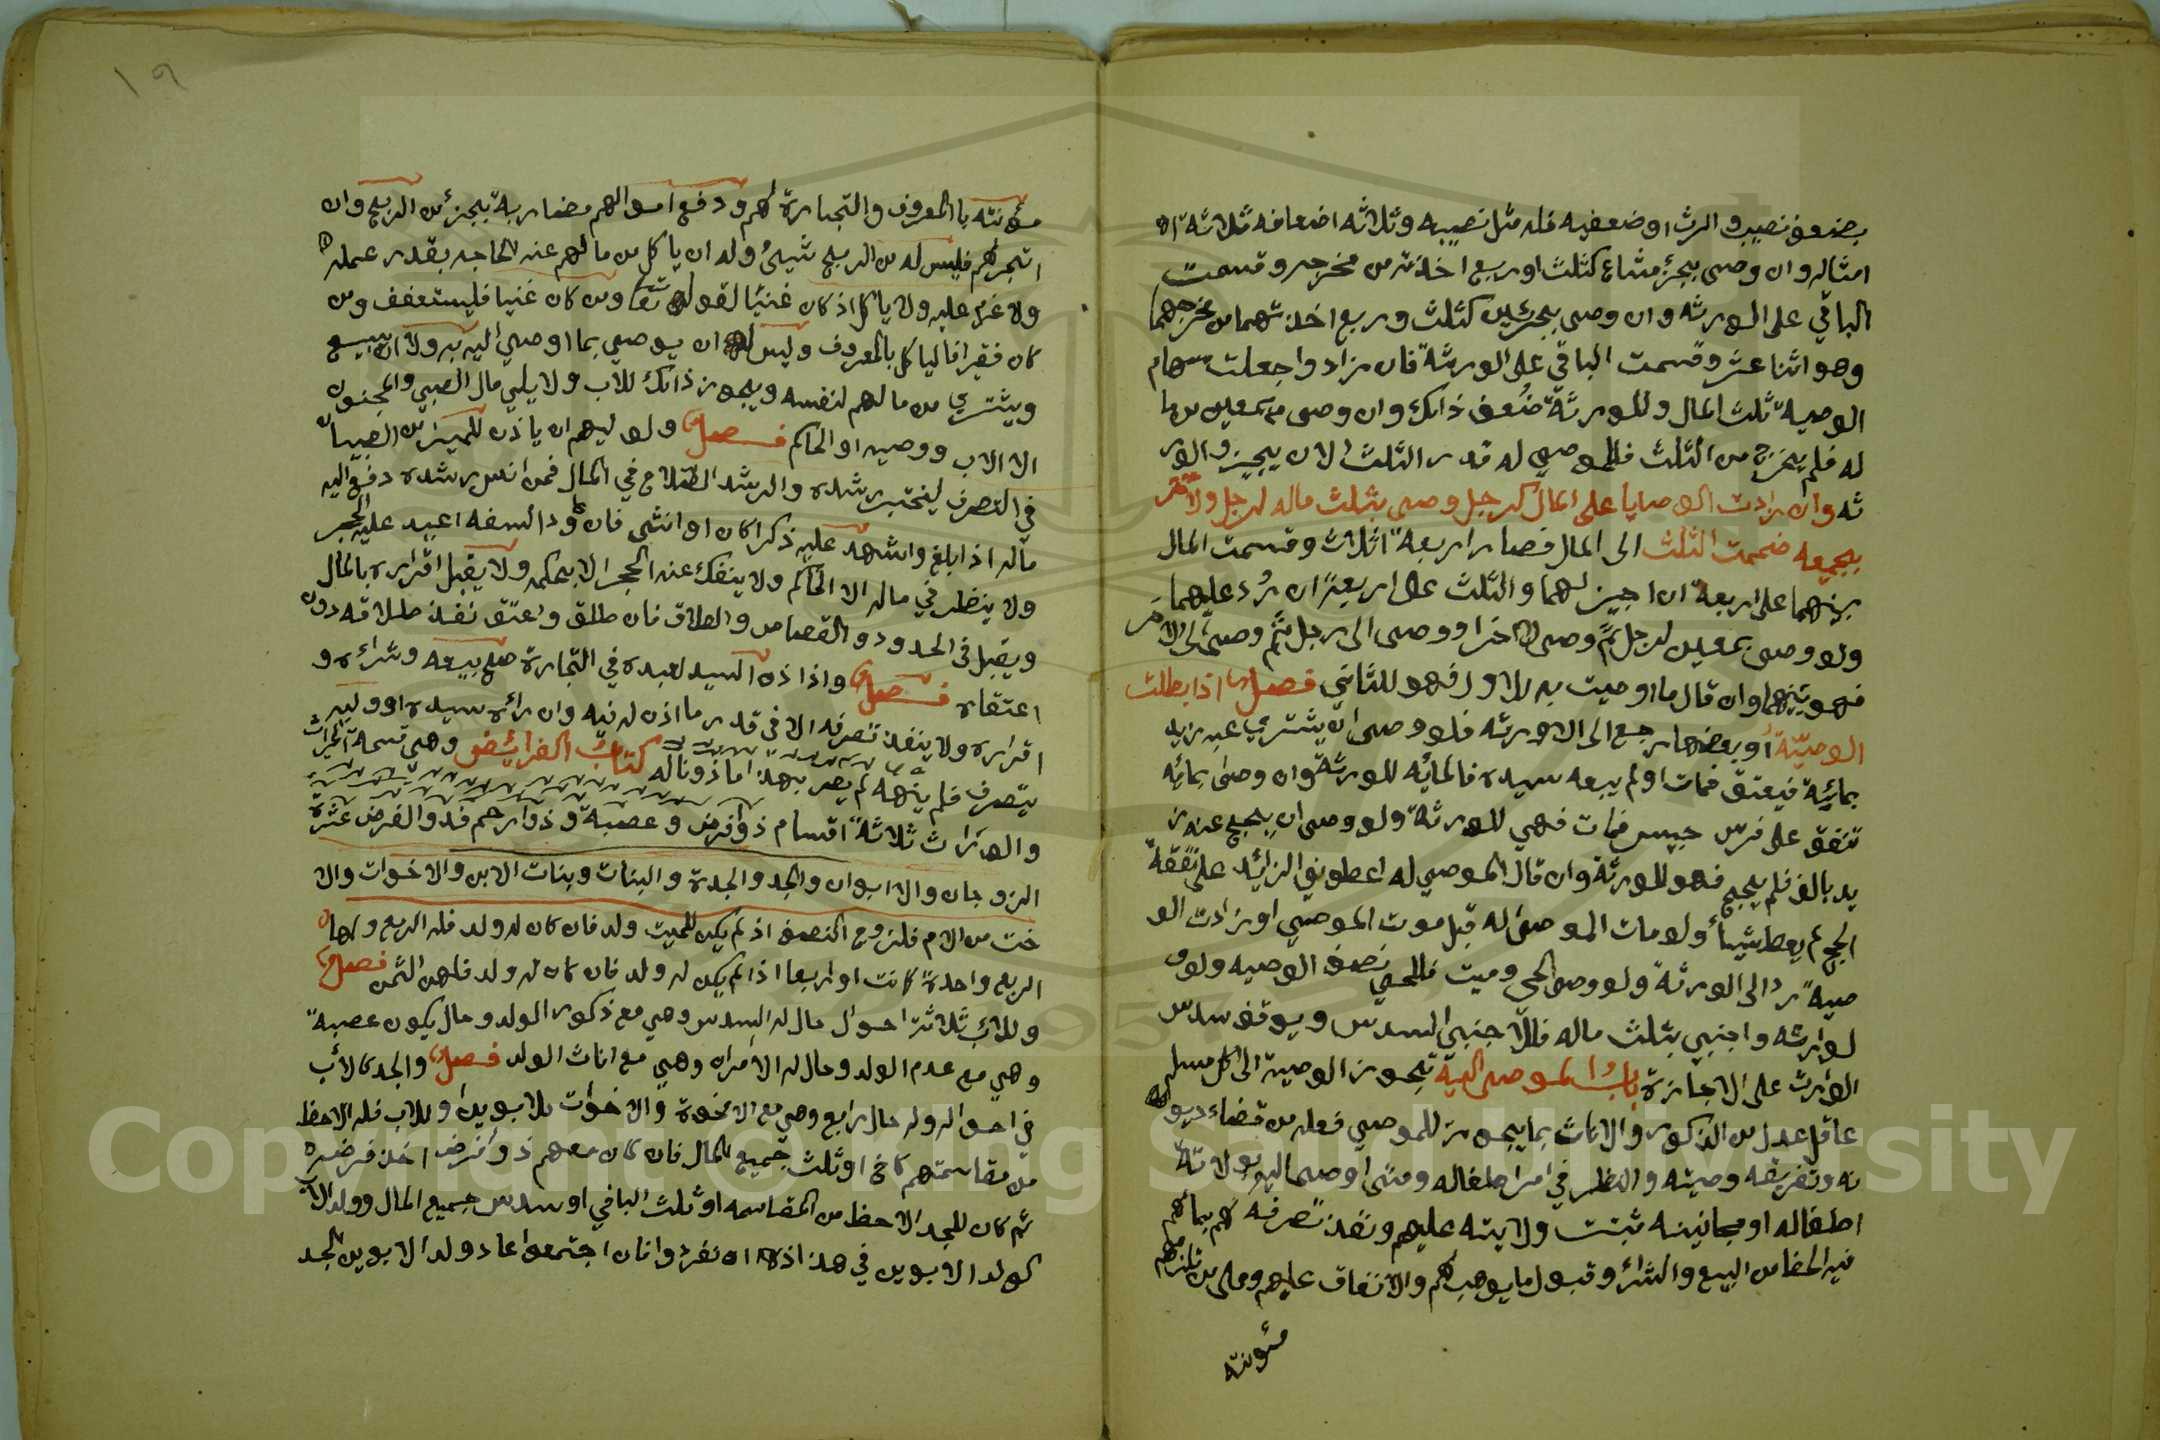 بضعف نصيب وارث او ضعفيه فله مثل نصيبه وثلاثه اضعافه ثلاثة
امثاله وان وصى بجزء مشاع كثلث او ربع اخذته من مخرجه وقسمت
الباقي على الورثه وان وصى بجزئين كثلث وربع اخذتهما من مخرجهما
وهو اثنا عشر وقسمت الباقي على الورثة فان زادوا جعلت سهام
الوصية ثلث المال وللورثة ضعف ذالك وان وصى بمعين من ما
له فلم يخرج من الثلث فللموصى له قدر الثلث الا ان يجيز الور
ثه وان زادت الوصايا على المال كرجل وصى بثلث ماله لرجل ولآخر
بجميعه ضممت الثلث الى المال فصار اربعة اثلاث وقسمت المال
بينهما على اربعة ان اجيز لهما والثلث على اربعة ان رد عليهما
ولو وصى بمعين لرجل ثم وصى به لاخر او وصى الى رجل ثم وصى الى الاخر
فهو بينهما وان قال ما اوصيت به للاول فهو للثاني فصل اذا بطلت
الوصية او بعضها رجع الى الورثه فلو وصى ان يشترى عبد زيد
بمائة فيعتق فمات او لم يبعه سيده فالمائه للورثة وان وصى بمائه
تنفق على فرس حبيس فمات فهي للورثة ولو وصى ان يحج عنه ز
يد بالف فلم يحج فهو للورثة وان قال الموصى له اعطوني الزائد على نفقة
الحج لم يعط شيئا ولو مات الموصى له قبل موت الموصي او زادت الو
صية رد الى الورثة ولو وصى لحي وميت فللحي نصف الوصيه ولو
لوارثه واجنبي بثلث ماله فللاجنبي السدس ويوقف سدس
الوارث على الاجازة باب الموصى اليه تجوز الوصية الى كل مسلم
عاقل عدل من الذكور والاناث بما يجوز للموصي فعله من قضاء ديو
نه وتفريقه وصيته والنظر في امر اطفاله ومتى اوصى اليه بولاية
اطفاله او مجانينه ثبتت ولايته عليهم ونفذ تصرفه لهم بما لهم
فيه الحظ من البيع والشراء وقبول ما يوهب لهم والانفاق عليهم وعلى من تلزمهم
مئونته
مئونته بالمعروف والتجارة لهم ودفع اموالهم مضاربة بجزء من الربح وان
اتجر لهم فليس له من الربح شيئ وله ان ياكل من مالهم عند الحاجه بقدر عمله
ولا غرم عليه ولا ياكل اذا كان غنيا لقوله تعا ومن كان غنيا فليستعفف ومن
كان فقيرا فلياكل بالمعروف وليس له ان يوصي بما اوصي اليه به ولا ان يبيع
ويشتري من مالهم لنفسه ويجوز ذالك للاب ولا يلي مال الصبي والمجنون
الا الاب ووصيه او الحاكم فصل ولوليهم ان ياذن للمميز من الصبيان
في التصرف ليختبر رشده والرشد الصلاح في المال فمن انس رشده دفع اليه
ماله اذا بلغ واشهد عليه ذكرا كان او انثى فان عاود السفه اعيد عليه الحجر
ولا ينظر في ماله الا الحاكم ولا ينفك عنه الحجر الا بحكمه ولا يقبل اقراره بالمال
ويقبل في الحدود والقصاص والطلاق فان طلق واعتق نفذ طلاقه دون
اعتقاه فصل واذا اذن السيد لعبده في التجارة صح بيعه وشرائه و
اقراره ولا ينفذ تصرفه الا في قدر ما اذن له فيه وان رآه سيده او وليه
يتصرف فلم ينهه لم يصر بهذا ماذونا له كتاب الفرائض وهي قسمة الميراث
والوراث ثلاثة اقسام ذو فرض وعصبة وذو رحم فذو الفرض عشرة
الزوجان والابوان والجد والجدة والبنات وبنات الابن والاخوات والا
خت من الام فللزوج النصف اذا لم يكن للميت ولد فان كان له ولد فله الربع ولها
الربع واحدة كانت او اربعا اذا لم يكن له ولد فان كان له ولد فلهن الثمن فصل
وللاب ثلاثة احوال حال له السدس وهي مع ذكور الولد وحال يكون عصبة
وهي مع عدم الولد وحال له الامران وهي مع اناث الولد فصل والجد كالاب
في احواله وله حال رابع وهي مع الاخوة والاخوات للابوين او للاب فله الاحظ
من مقاسمتهم كاخ او ثلث جميع المال فان كان معهم ذو فرض اخذ فرضه
ثم كان للجد الاحظ من المقاسمه او ثلث الباقي او سدس جميع المال وولد الاب
كولد الابوين في هذا اذا انفردوا فان اجتمعوا عاد ولد الابوين الجد
١٩
Copyright © King Saud University